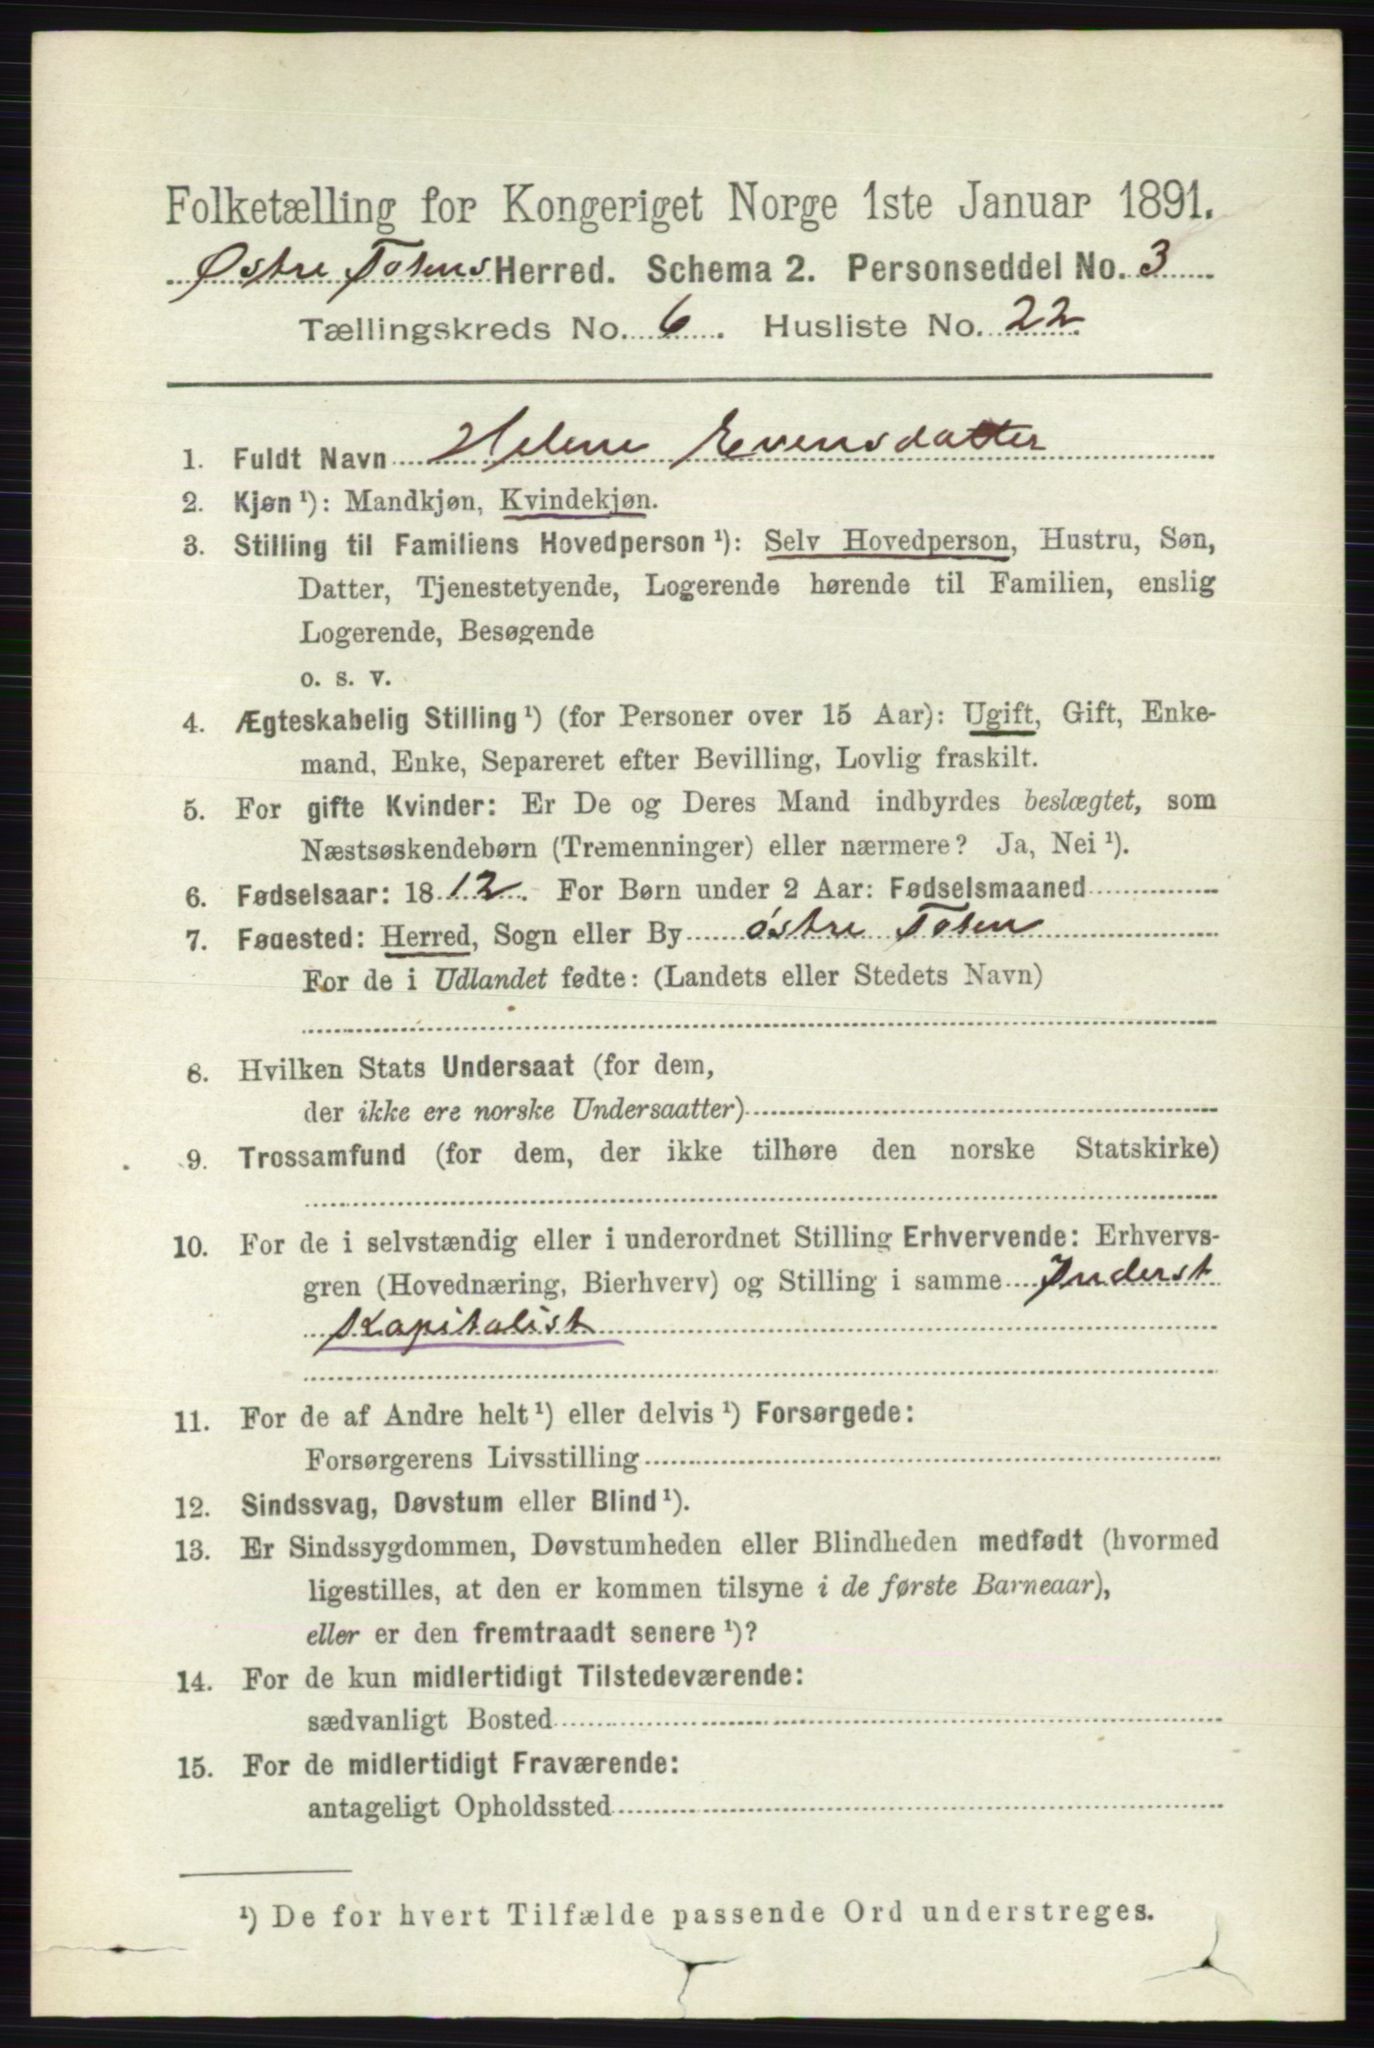 Folketælling for Kongeriget Norge 1ste Januar 1891.
Østre Totens Herred. Schema 2. Personseddel No. 3
Tællingskreds No. 6. Husliste No. 22
1. Fuldt Navn Helene Evensdatter
2. Kjøn ¹): Mandkjøn, Kvindekjøn.
3. Stilling til Familiens Hovedperson ¹): Selv Hovedperson, Hustru, Søn,
Datter, Tjenestetyende, Logerende hørende til Familien, enslig
Logerende, Besøgende
o. s. v.
4. Ægteskabelig Stilling ¹) (for Personer over 15 Aar): Ugift, Gift, Enke-
mand, Enke, Separeret efter Bevilling, Lovlig fraskilt.
5. For gifte Kvinder: Er De og Deres Mand indbyrdes beslægtet, som
Næstsøskendebørn (Tremenninger) eller nærmere? Ja, Nei ¹).
6. Fødselsaar: 1812. For Børn under 2 Aar: Fødselsmaaned
7. Fødested: Herred, Sogn eller By østre Toten
For de i Udlandet fødte: (Landets eller Stedets Navn)
8. Hvilken Stats Undersaat (for dem,
der ikke ere norske Undersaatter)
9. Trossamfund (for dem, der ikke tilhøre den norske Statskirke)
10. For de i selvstændig eller i underordnet Stilling Erhvervende: Erhvervs-
gren (Hovednæring, Bierhverv) og Stilling i samme Inderst
Kapitalist
11. For de af Andre helt ¹) eller delvis ¹) Forsørgede:
Forsørgerens Livsstilling
12. Sindssvag, Døvstum eller Blind ¹).
13. Er Sindssygdommen, Døvstumheden eller Blindheden medfødt (hvormed
ligestilles, at den er kommen tilsyne i de første Barneaar),
eller er den fremtraadt senere ¹)?
14. For de kun midlertidigt Tilstedeværende:
sædvanligt Bosted
15. For de midlertidigt Fraværende:
antageligt Opholdssted
¹) De for hvert Tilfælde passende Ord understreges.